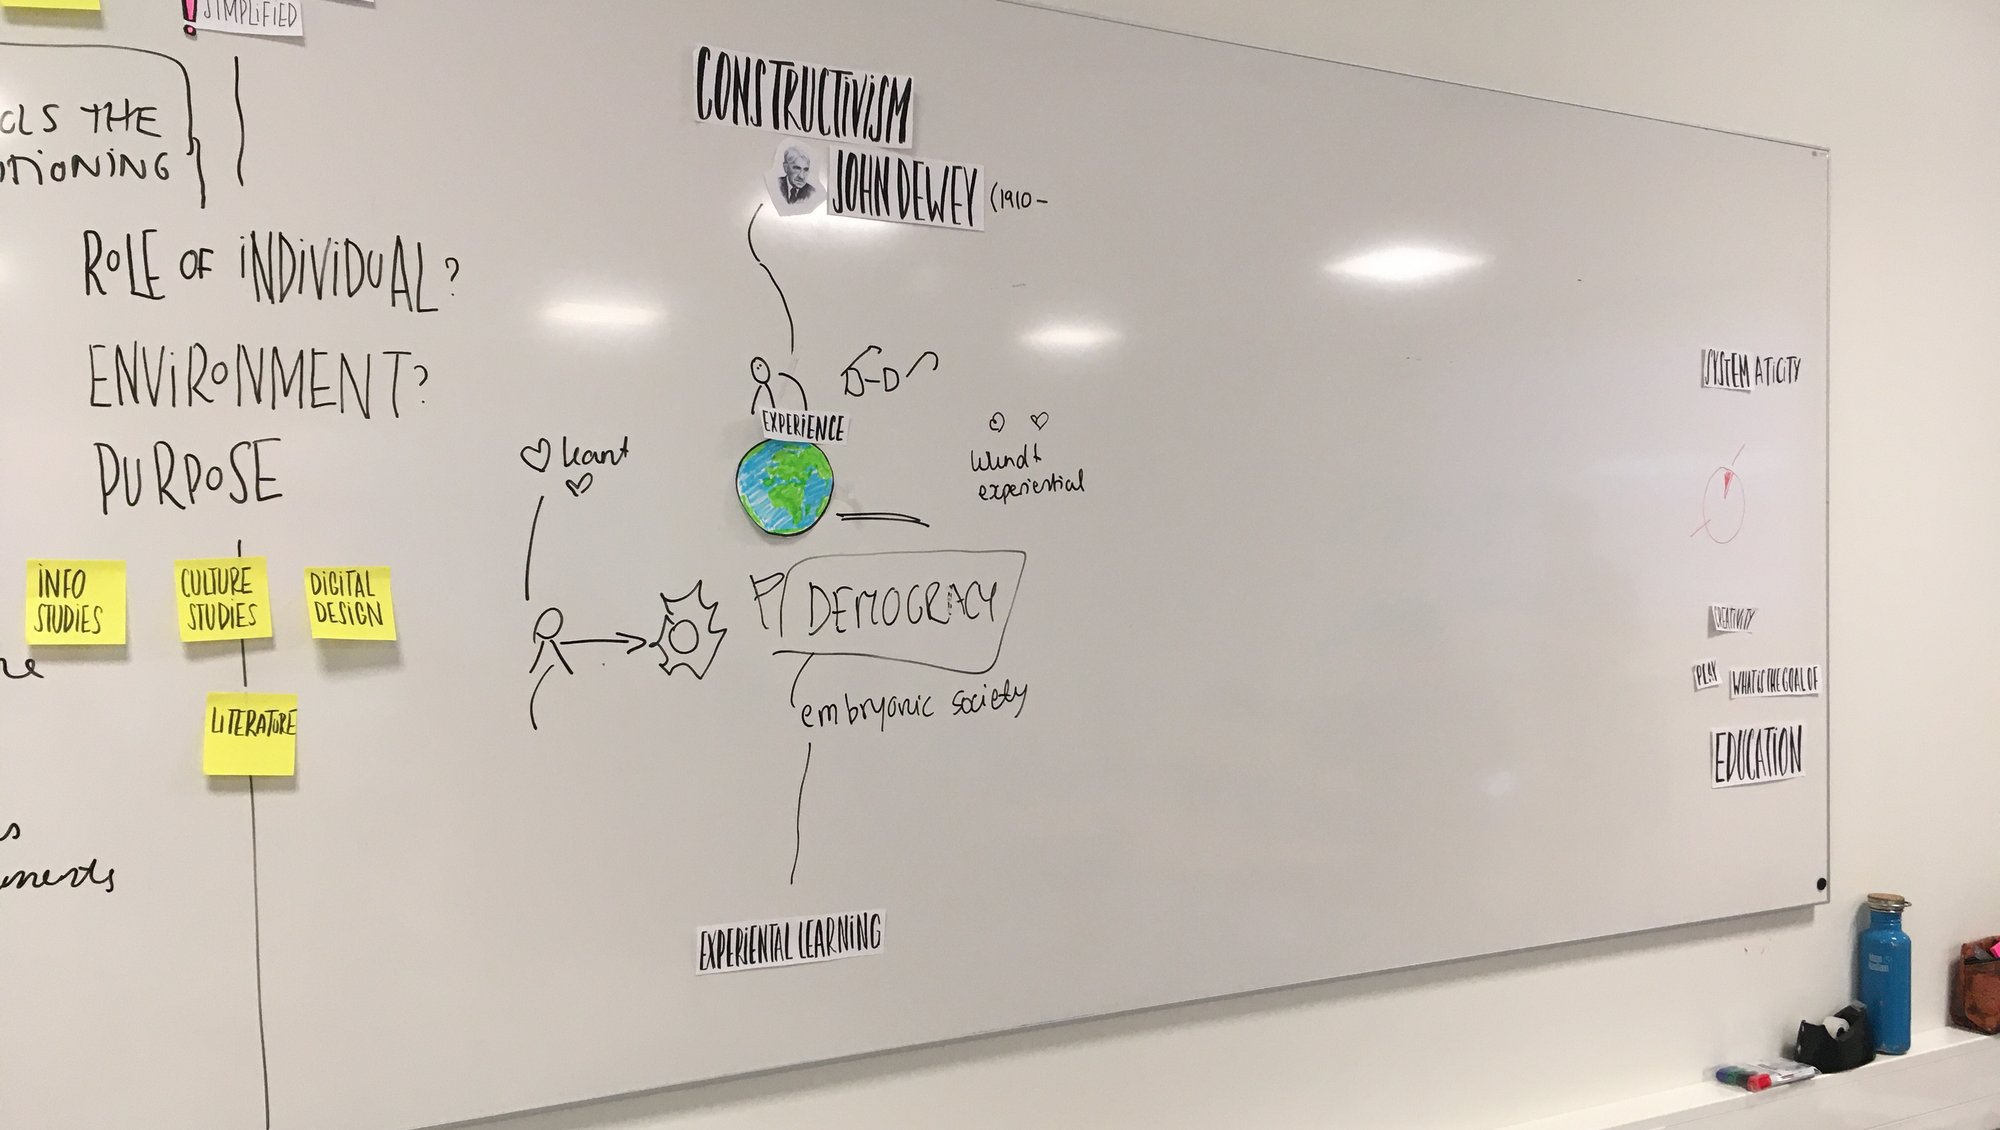 SIMPLIFIED
THE
ROLE OF INDIVIDUAL?
ENVIRONMENT?
PURPOSE
INFO
STUDIES
CULTURE
STUDIES
DIGITAL
DESIGN
LITERATURE
CONSTRUCTIVISM
JOHN DEWEY (1910-
EXPERIENCE
kant
Wundt
experiential
DEMOCRACY
embryonic society
EXPERIENTAL LEARNING
SYSTEMATICITY
CREATIVITY
PLAY
WHAT IS THE GOAL OF
EDUCATION